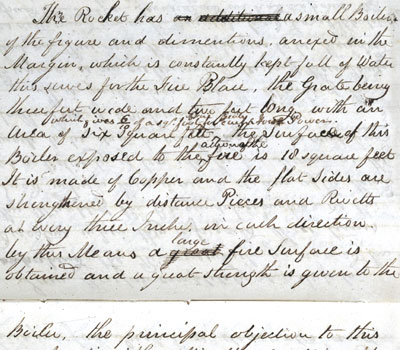 The Rocket has an additional a small Boiler
of the figure and dimentions, anexed in the
Margin, which is constantly kept full of Water
this serves for the Fire Place, the Grate being
three feet wide and two feet long with an
which gives 6 of a sq. foot to
Area of Six Square feet. The Surface of this
Boiler exposed to the fire is 18 square feet
It is made of Copper and the flat Sides are
strengthened by distance Pieces and Rivetts
at every three Inches in each direction
large
by this Means a great fire Surface is
obtained and a great strength is given to the
Boiler, the principal objection to this